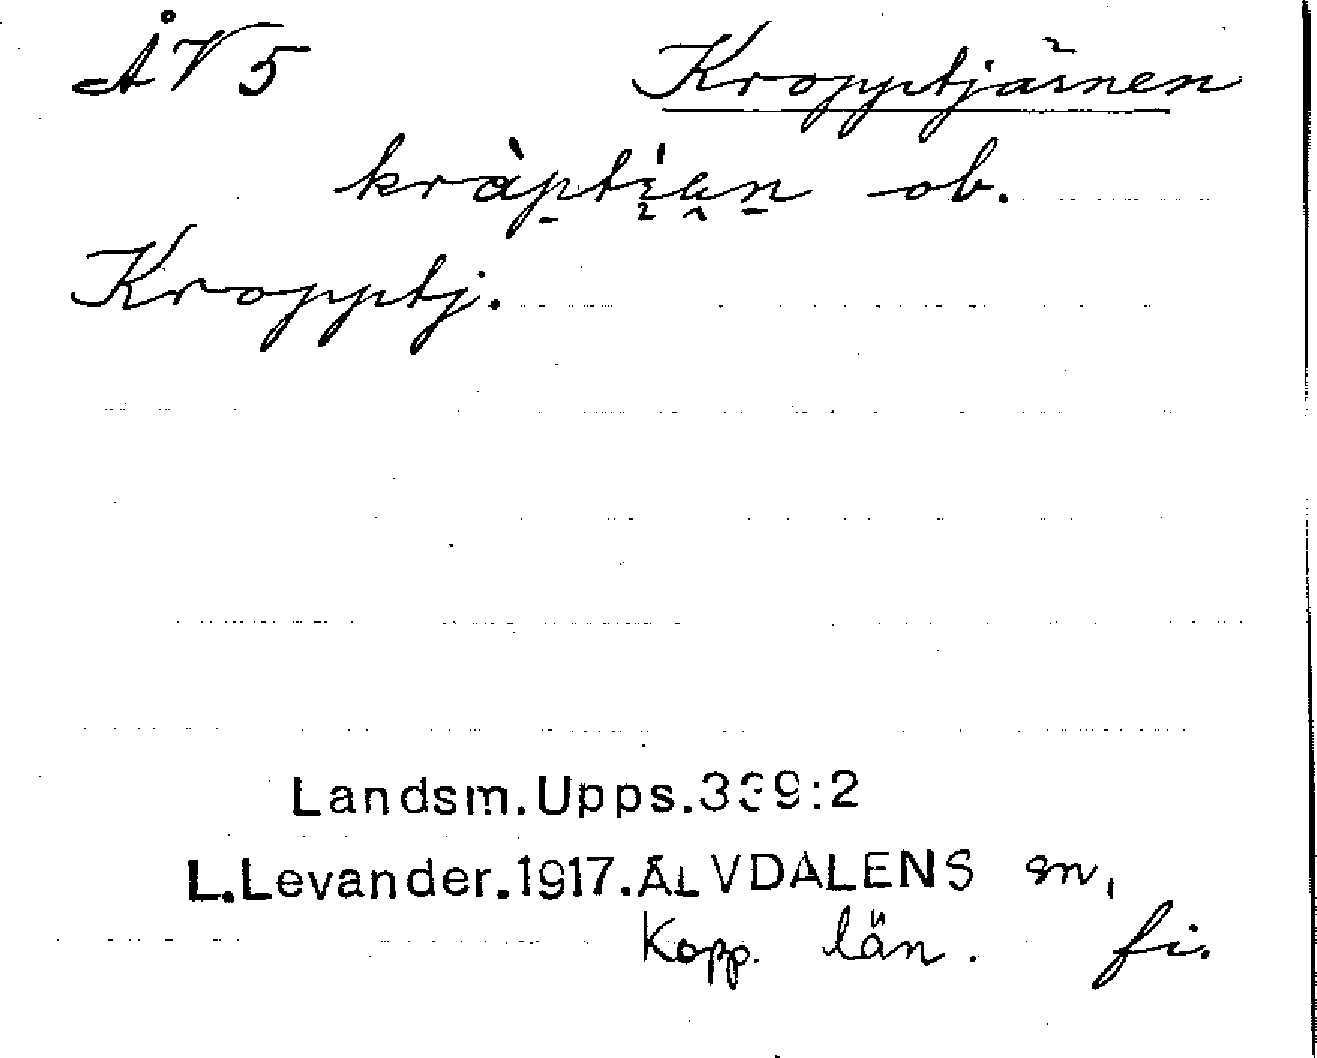 ÅV 5 Kropptjärnen
kràptįa̭n ob.
Kropptj.
Landsm.Upps.339:2
L.Levander.1917.ÄLVDALENS sn,
Kopp. län. fi.